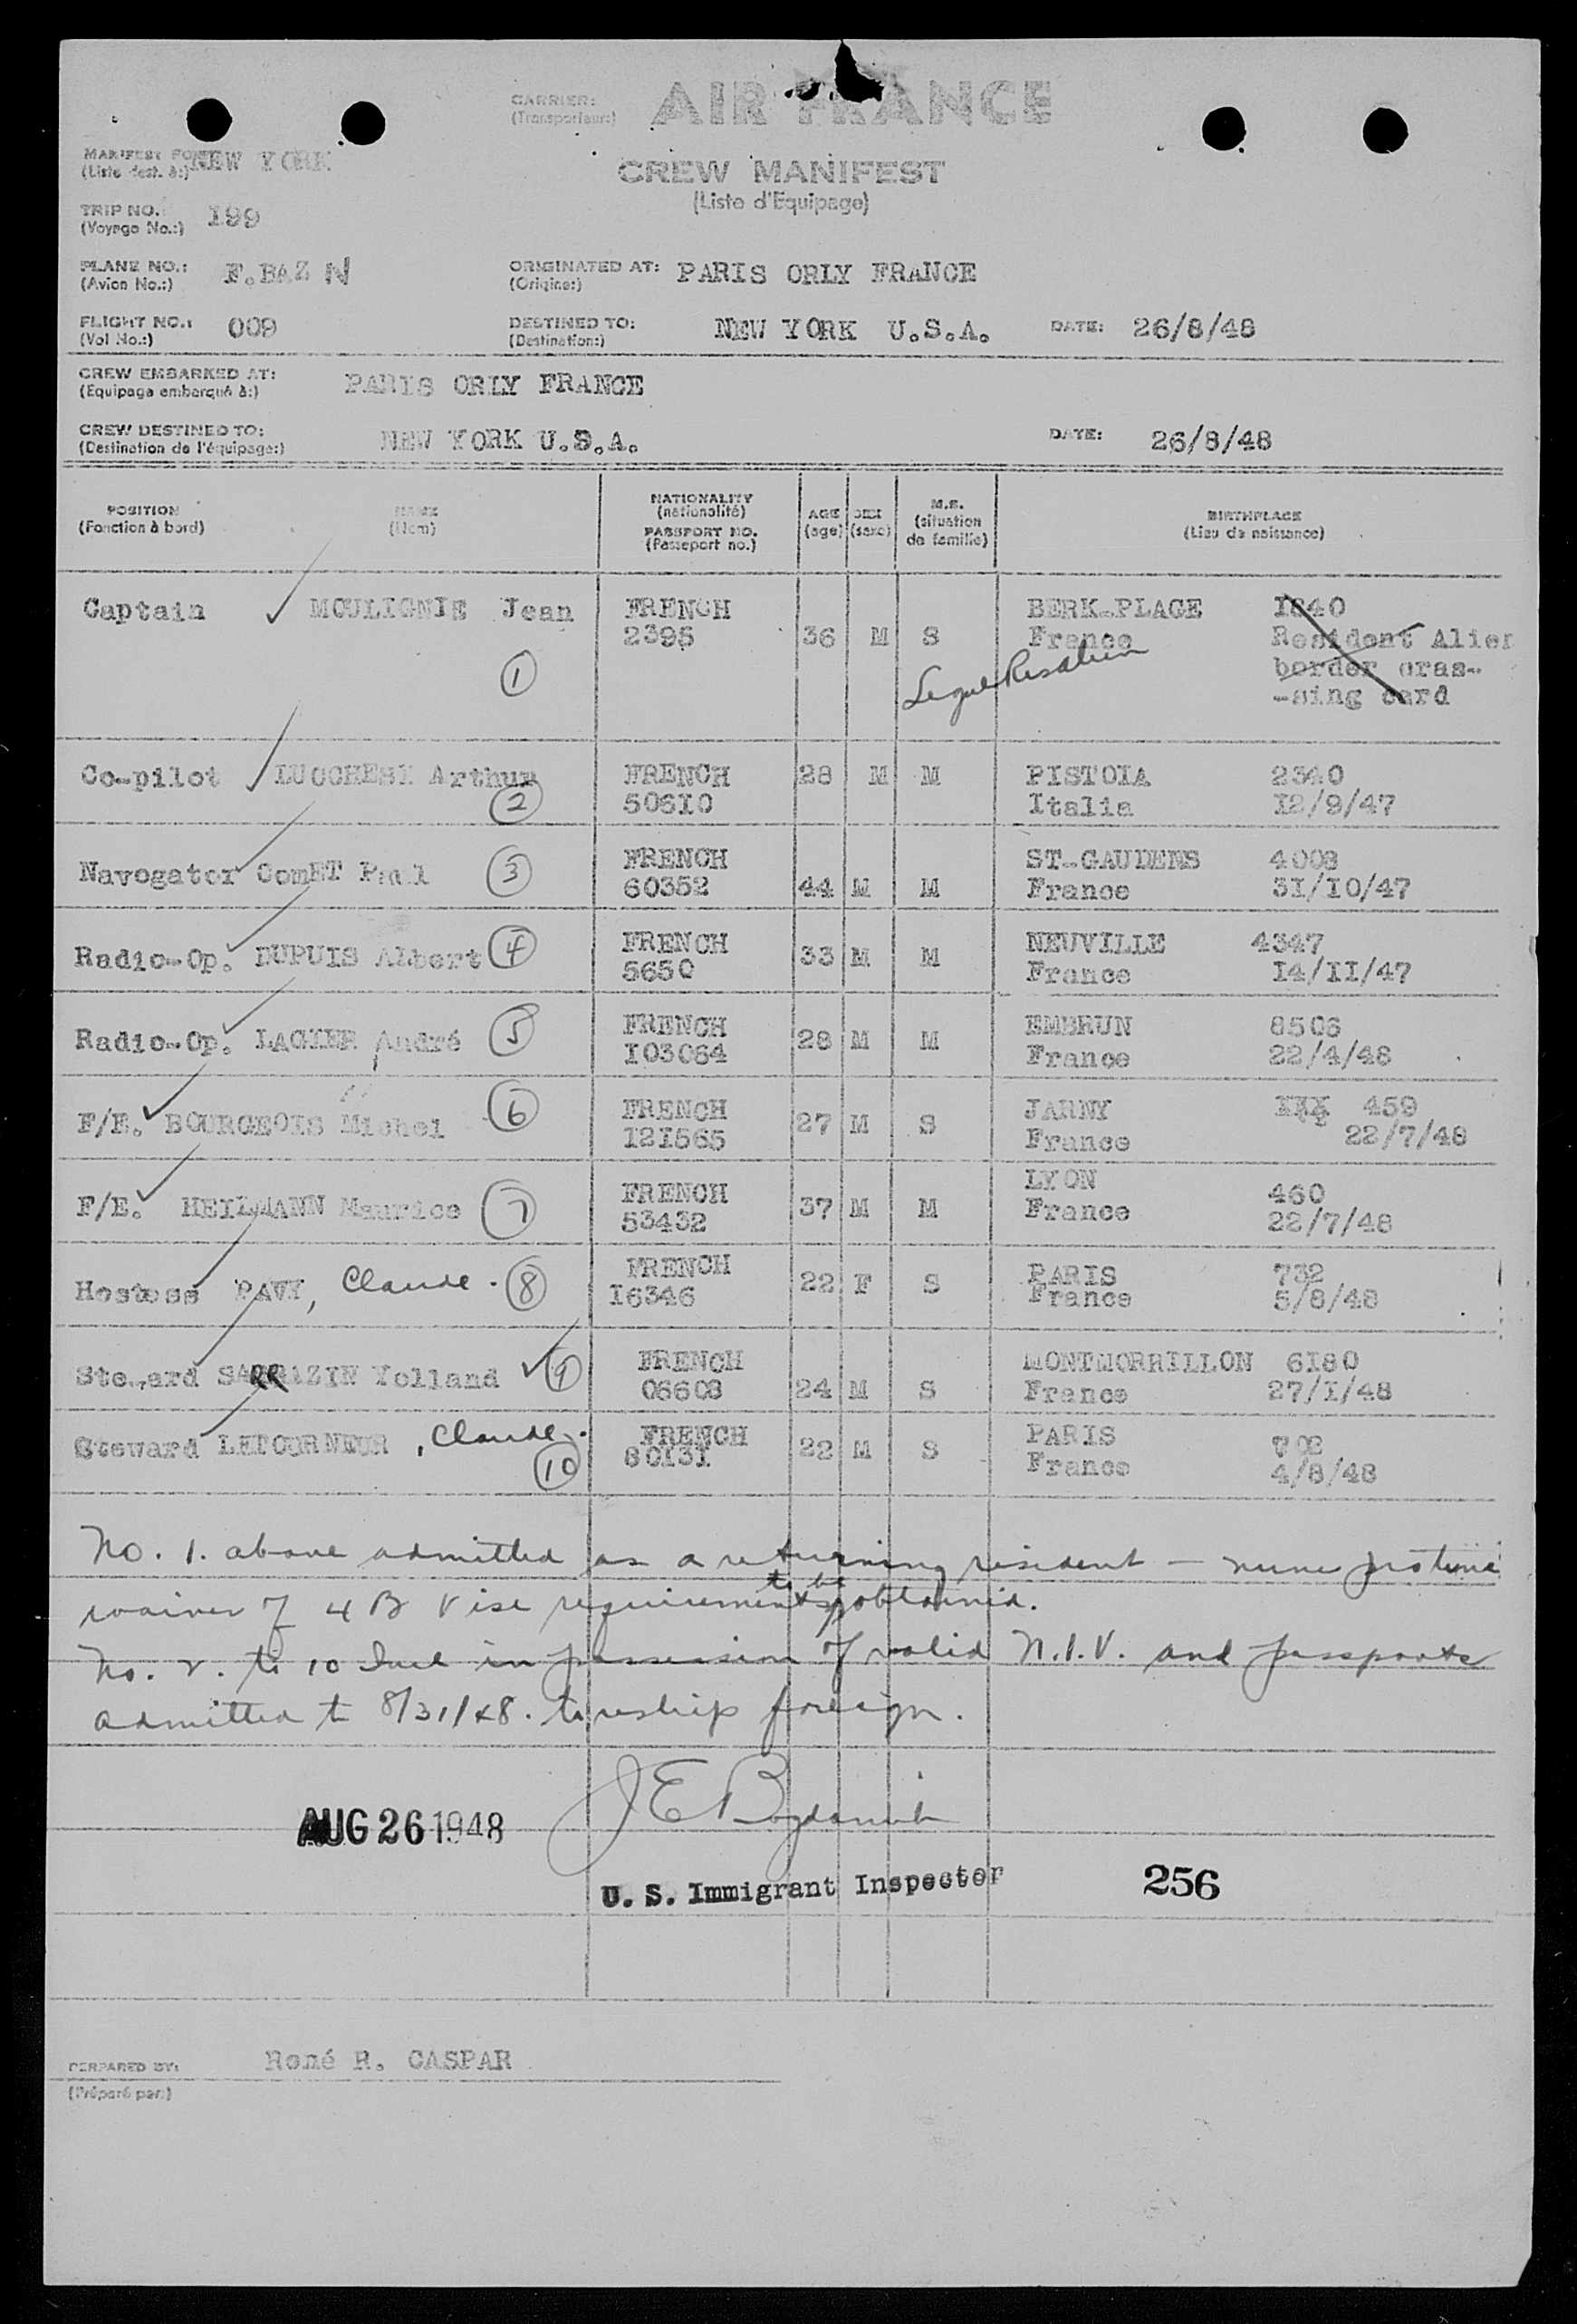 CARRIER: AIR FRANCE
(Transporteur:)
MANIFEST FOR NEW YORK
(Liste dest. à:)
CREW MANIFEST
(Liste d'Equipage)
TRIP NO. 199
(Voyage No.:)
PLANE NO.: F.BAZ N ORIGINATED AT: PARIS ORLY FRANCE
(Avion No.:) (Origine:)
FLIGHT NO.: 009 DESTINED TO: NEW YORK U.S.A. DATE: 26/8/48
(Vol No.:) (Destination:)
CREW EMBARKED AT: PARIS ORLY FRANCE
(Equipage embarqué à:)
CREW DESTINED TO: NEW YORK U.S.A. DATE: 26/8/48
(Destination de l'équipage:)
POSITION NAME NATIONALITY AGE SEX M.S. BIRTHPLACE
(Fonction à bord) (Nom) (nationalité) (age) (sexe) (situation de famille) (Lieu de naissance)
PASSPORT NO.
(Passeport no.)
Captain MOULIGNIE Jean FRENCH BERK-PLAGE I840
2395 36 M S France Resident Alien
1 Legal Resident border cras-
-sing card
Co-pilot LUCCHESI Arthur FRENCH 28 M M PISTOIA 2340
2 506I0 Italia I2/9/47
FRENCH ST-GAUDENS 4008
Navogator ComET Paul 3 60352 44 M M France 3I/I0/47
Radio-Op. DUPUIS Albert 4 FRENCH 33 M M NEUVILLE 4347
5650 France I4/II/47
Radio-Op. LAGIER André 5 FRENCH 28 M M EMBRUN 8506
I03064 France 22/4/48
F/E. BOURGEOIS Michel 6 FRENCH 27 M S JARNY 459
I2I565 France 22/7/48
F/E. HEILMANN Maurice 7 FRENCH 37 M M LYON 460
53432 France 22/7/48
Hostess PAVY, Claude. 8 FRENCH 22 F S PARIS 732
I6346 France 5/8/48
Steward SARRAZIN Yolland 9 FRENCH MONTMORRILLON 6I80
06608 24 M S France 27/I/48
Steward LETOURNEUR, Claude. FRENCH 22 M S PARIS
10 80I3I France 4/8/48
No. 1. above admitted as a returning resident — nunc pro tunc
waiver of 4 B Vise requirements to be obtained.
No. 2. to 10 Incl in possession of valid N.I.V. and passports
admitted to 8/31/48. to reship foreign.
AUG 26 1948
U. S. Immigrant Inspector 256
PERPARED BY: René R. CASPAR
(Préparé par:)